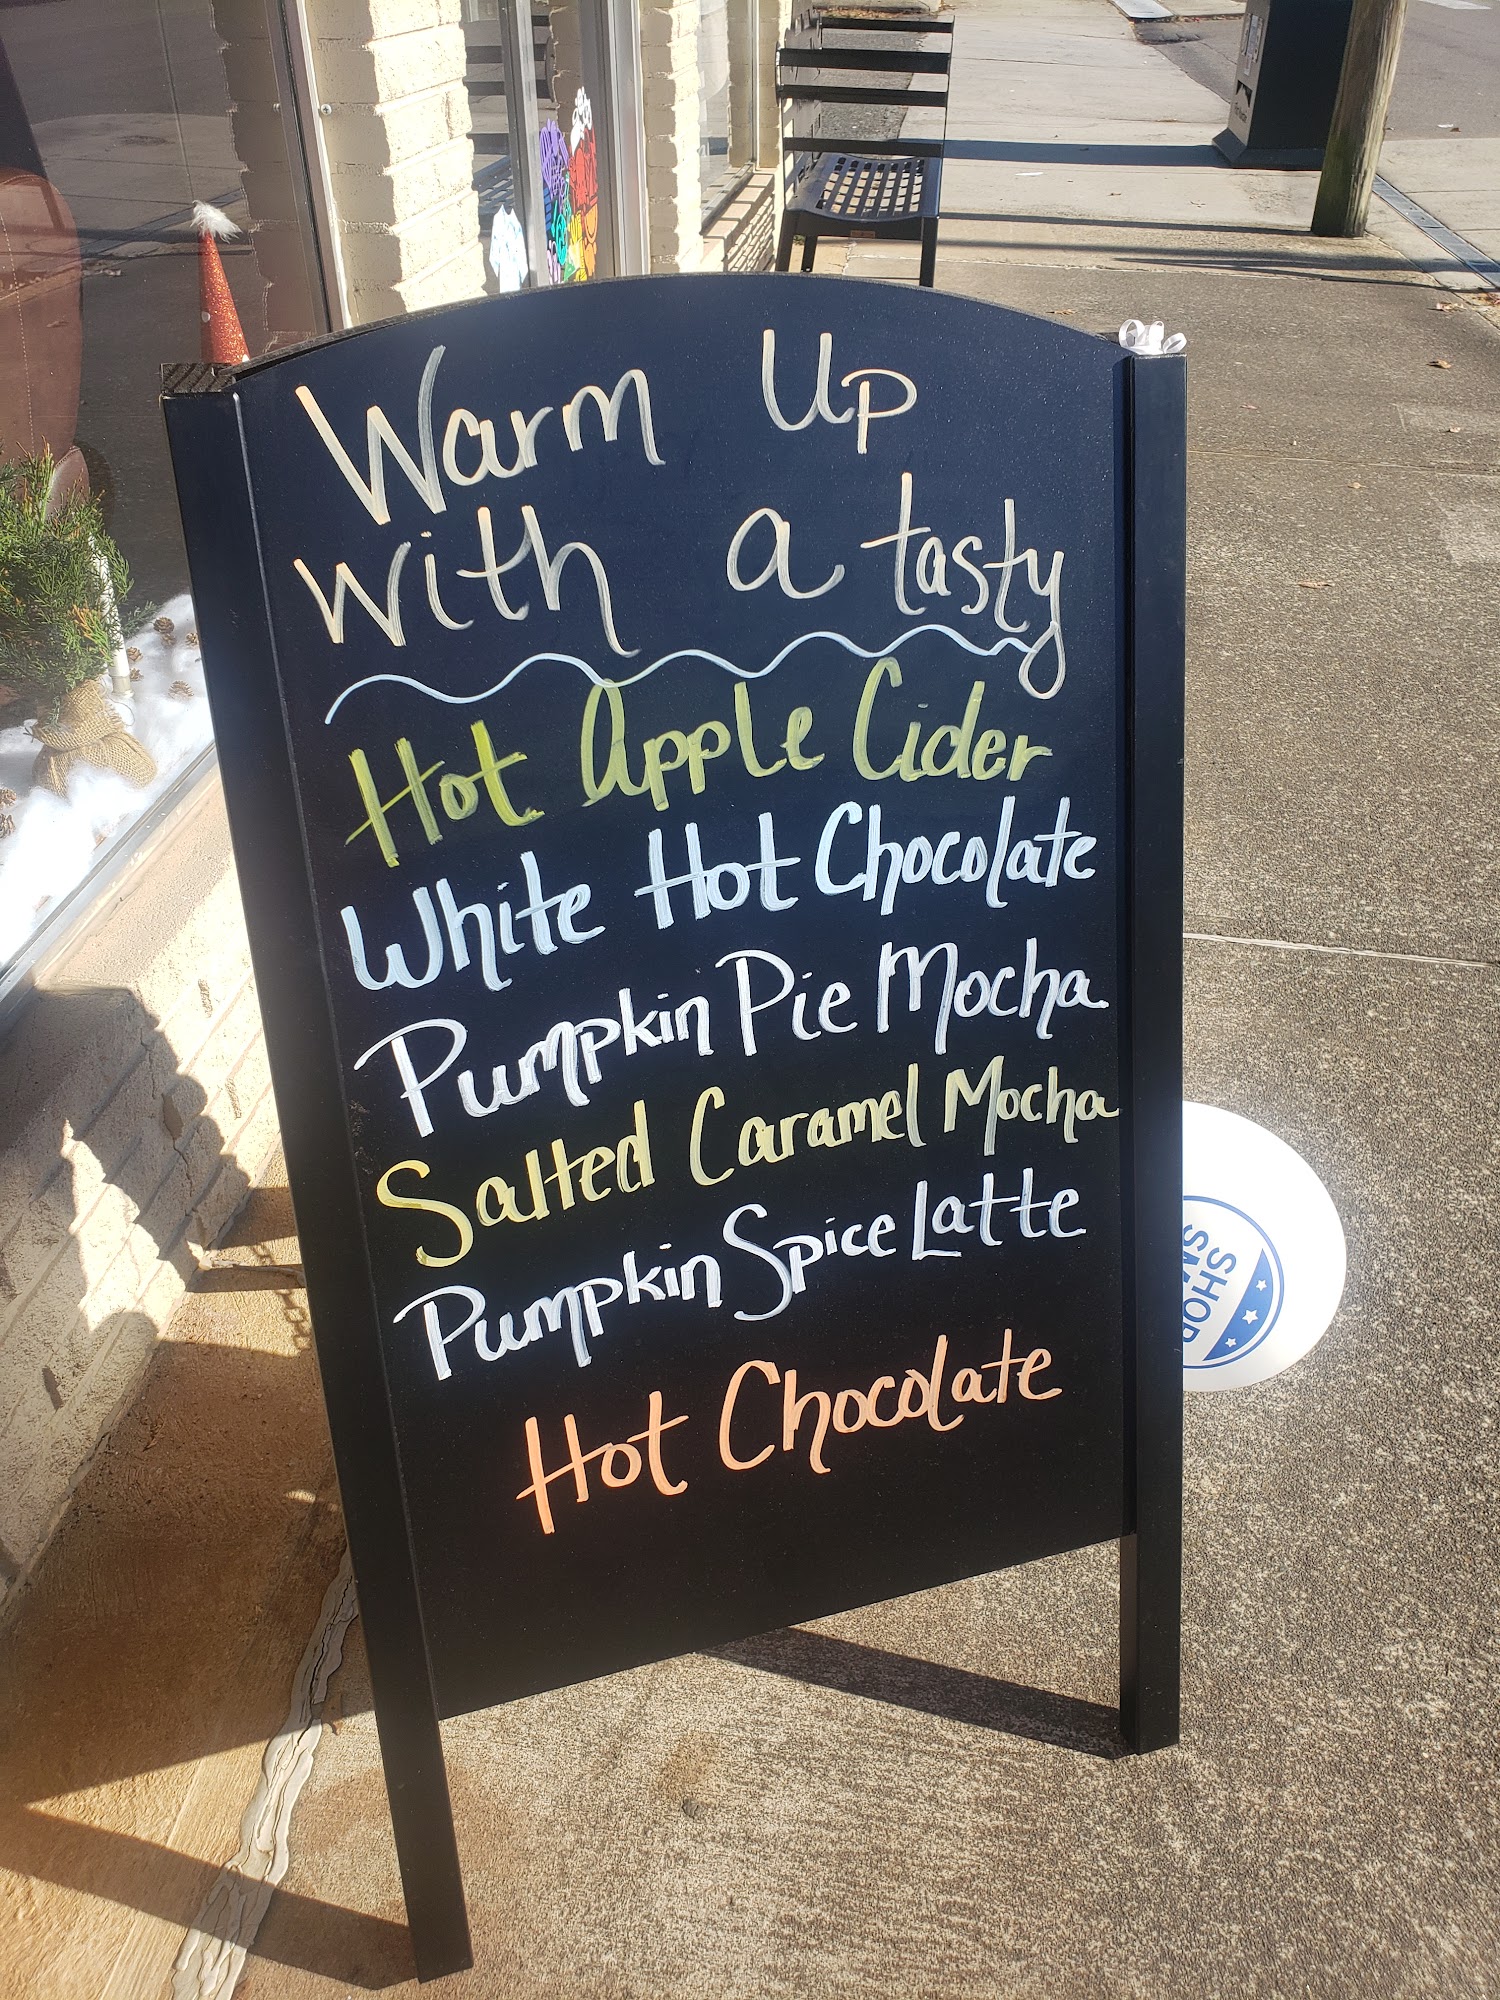 Warm Up
with a tasty
Hot Apple Cider
White Hot Chocolate
Pumpkin Pie Mocha
Salted Caramel Mocha
Pumpkin Spice Latte
Hot Chocolate
SHOP